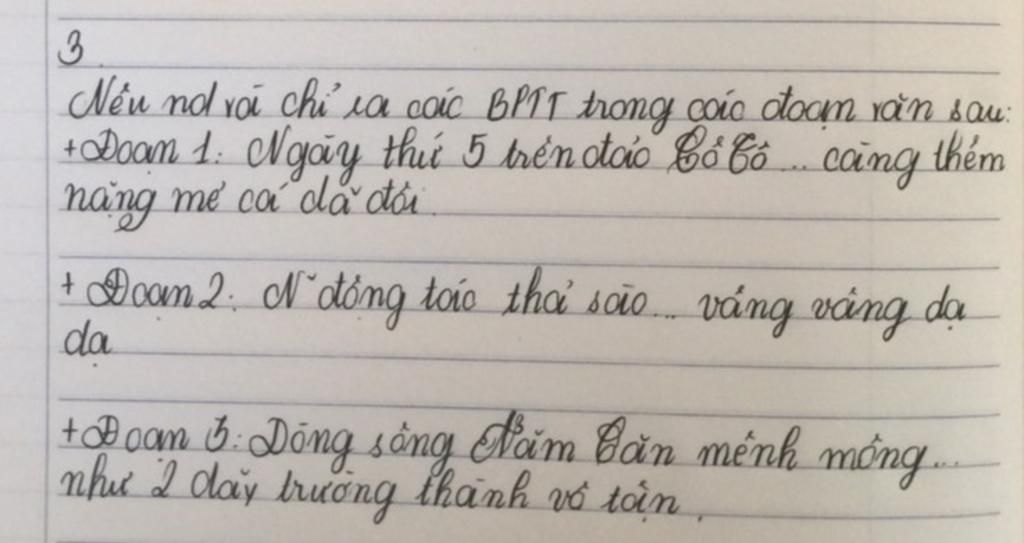 3
Nêu nd rồi chỉ ra các BPTT trong các đoạn văn sau:
+Đoạn 1: Ngày thứ 5 trên đảo Cô Tô... càng thêm
nặng mẻ cá dã đôi.
+ Đoạn 2: N~ động tác thả sào... vâng vâng dạ
dạ
+Đoạn 3: Dòng sông Năm Căn mênh mông...
như 2 dãy trường thành vô tận.